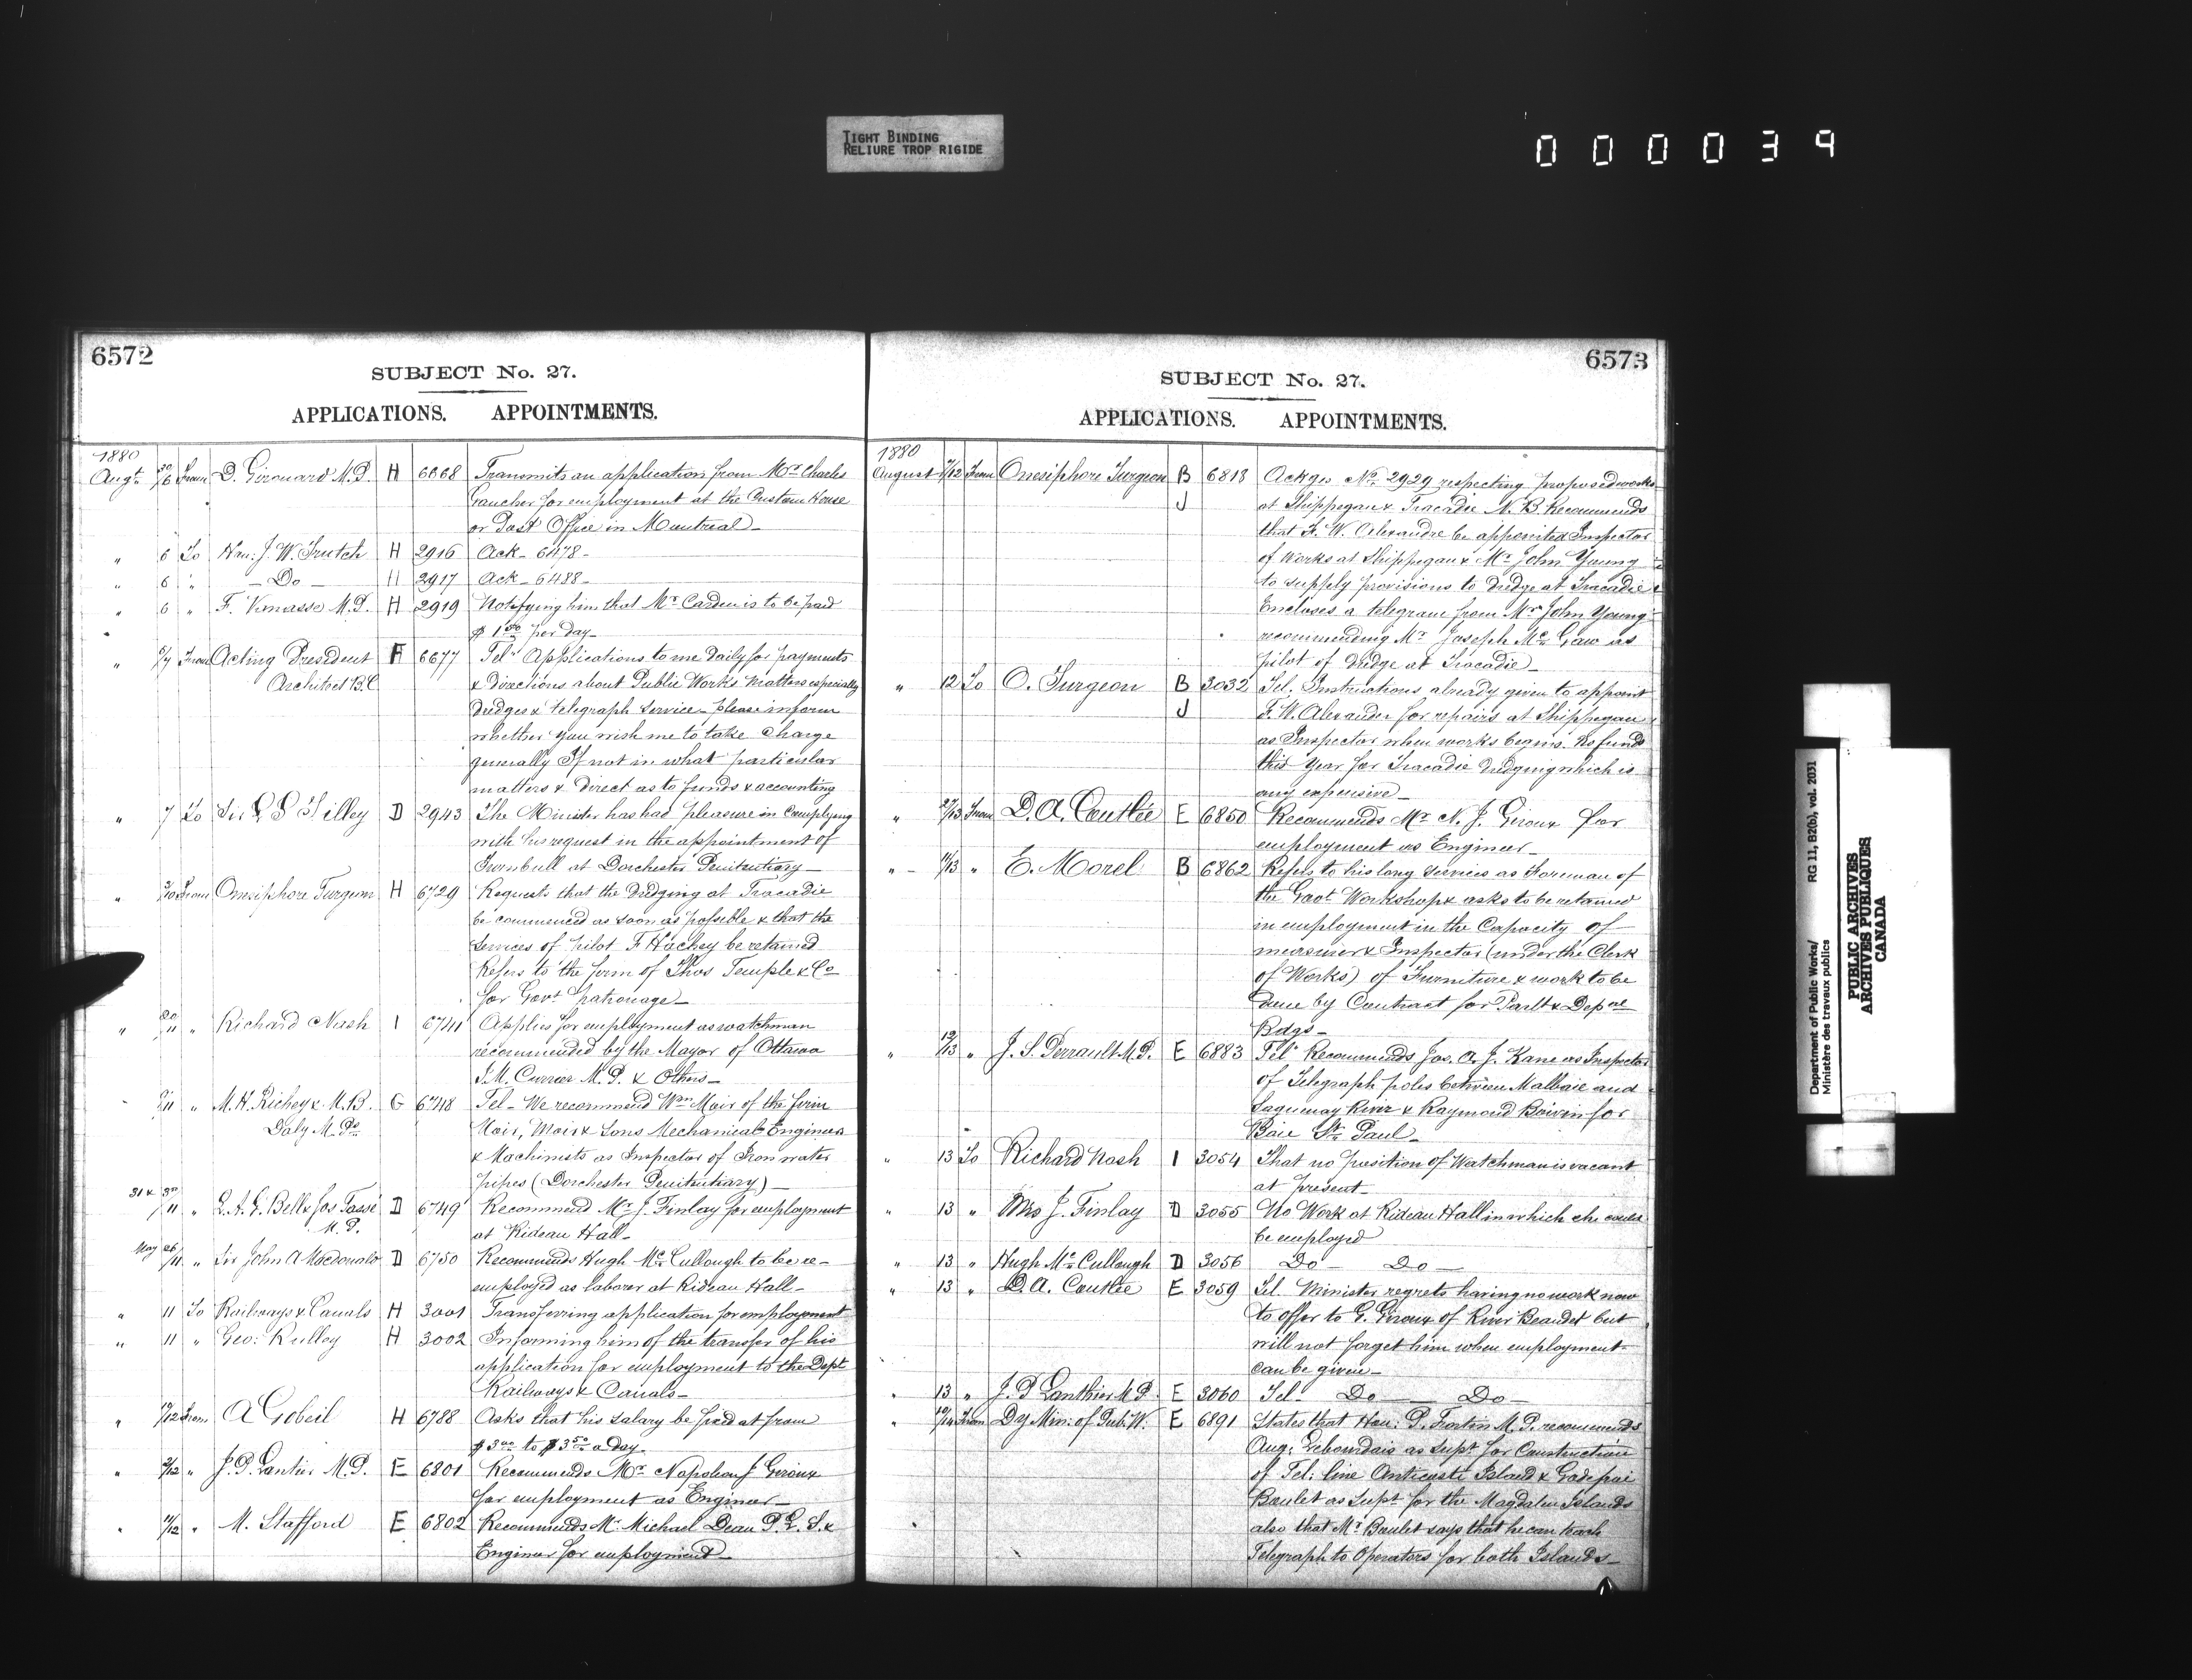 TIGHT BINDING
RELIURE TROP RIGIDE
000039
6572
SUBJECT No. 27.
APPLICATIONS. APPOINTMENTS.
1880
Augt 30/6 From D. Girouard M.P. H 6668 Transmits an application from Mr Charles
Gaucher for employment at the Custom House
or Post Office in Montreal_
" 6 To Hon: J. W. Trutch H 2916 Ack_ 6478_
" 6 " _ Do _ H 2917 Ack_ 6488_
" 6 " F. Vanasse M.P. H 2919 Notifying him that Mr Carden is to be paid
$ 1.50 per day_
" 6/7 From Acting President H 6677 Tel. Applications to me daily for payments
Architect B.C. & directions about Public Works matters especially
dredges & telegraph service_ please inform
whether you wish me to take charge
generally If not in what particular
matters & direct as to funds & accounting
" 7 To Sir L S Tilley D 2943 The Minister has had pleasure in Complying
with his request in the appointment of
Turnbull at Dorchester Penitentiary_
" From Onesiphore Turgeon H 6729 Requests that the dredging at Tracadie
be commenced as soon as possible & that the
services of pilot F Hachey be retained
Refers to the firm of Thos Temple & Co
for Govt patronage_
" 20/11 " Richard Nash I 6741 Applies for employment as watchman
recommended by the Mayor of Ottawa
J.M. Currier M.P. & Others_
/11 " M.H. Richey & M.B. G 6748 Tel_ We recommend Wm Moir of the firm
Daly M.Ps Moir, Moir & Sons Mechanical Engineers
& Machinists as Inspector of Iron water
pipes (Dorchester Penitentiary)_
31 & 30/11 " R.A.G. Bell & Jos Tassé D 6749 Recommend Mr J. Finlay for employment
M.P. at Rideau Hall_
May 26/11 " Sir John A Macdonald D 6750 Recommends Hugh McCullough to be re_
employed as laborer at Rideau Hall_
" 11 To Railways & Canals H 3001 Transferring application for employment
" 11 " Geo: Rulley H 3002 Informing him of the transfer of his
application for employment to the Dept
Railways & Canals_
" /12 From A Gobeil H 6788 Asks that his salary be paid at from
$3.00 to $3.50 a day.
" /12 " J.P. Lantier M.P. E 6801 Recommends Mr Napoleon J Giroux
for employment as Engineer_
" 11/12 " M. Stafford E 6802 Recommends Mr Michael Dean P.L.S. &
Engineer for employment_
6573
SUBJECT No. 27.
APPLICATIONS. APPOINTMENTS.
1880
August /12 From Onesiphore Turgeon B 6818 Ackges No 2929 respecting proposed works
J at Shippegan & Tracadie N.B. Recommends
that F. W. Alexandre be appointed Inspector
of Works at Shippegan & Mr John Young
to supply provisions to dredge at Tracadie &
Encloses a telegram from Mr John Young
recommending Mr Joseph McGaw as
pilot of dredge at Tracadie_
" 12 To O. Turgeon B 3032 Tel. Instructions already given to appoint
J F.W. Alexander for repairs at Shippegan
as Inspector when works begins. No funds
this year for Tracadie dredging which is
any expensive_
" 27/13 From D.A. Coutlée E 6850 Recommends Mr N. J. Giroux for
employment as Engineer_
" _ 11/13 " E. Morel B 6862 Refers to his long services as Foreman of
the Govt Workshop & asks to be retained
in employment in the Capacity of
measurer & Inspector (under the Clerk
of Works) of Furniture & work to be
done by Contract for Parlt & Depal
Bdgs_
" 12/13 " J. S. Perrault M.P. E 6883 Tel. Recommends Jos. A. J. Kane as Inspector
of Telegraph poles between Malbaie and
Saguenay River & Raymond Boivin for
Baie St Paul_
" 13 To Richard Nash I 3054 That no position of Watchman is vacant
at present_
" 13 " Mrs J. Finlay D 3055 No Work at Rideau Hall in which she could
be employed
" 13 " Hugh McCullough D 3056 Do _ Do _
" 13 " D.A. Coutlée E 3059 Tel. Minister regrets having no work now
to offer to G. Giroux of River Beaudet but
will not forget him when employment
can be given_
" 13 " J. P Lanthier M.P. E 3060 Tel_ Do _ Do _
" /14 From Dy Min: of Pub: W. E 6891 States that Hon: P. Fortin M.P. recommends
Aug: Lebourdais as supt for Construction
of Tel: line Anticosti Island & Godefroi
Boulet as supt for the Magdalen Islands
also that Mr Boulet says that he can teach
Telegraph to Operators for both Islands_
Department of Public Works/ RG 11, B2(b), vol. 2031
Ministère des travaux publics
PUBLIC ARCHIVES
ARCHIVES PUBLIQUES
CANADA